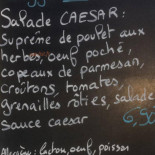 Salade CAESAR:
Suprême de poulet aux
herbes, oeuf poché,
copeaux de parmesan,
croûtons, tomates,
grenailles roties, salade
Sauce caesar
6,50
Allergène: lactose, oeuf, poisson